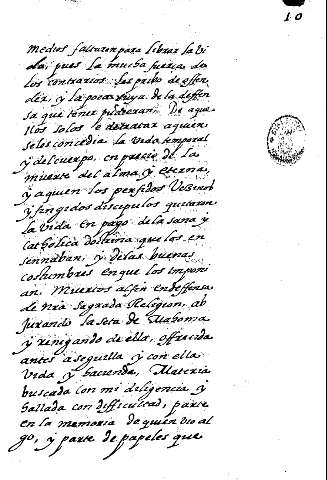 10
medios faltaron para librar la vi
da, pues la mucha fuerza de
los contrarios les privo de offen
der, y la poca suya de la deffen
sa que tener pudieran. De aque
llos solos e de tratar a quien
se les concedia la vida temporal
y del cuerpo, en precio de la
muerte del alma y eterna,
y a quien los perfidos Vezinos
y fingidos discipulos quitaron
la vida en pago de la sana y
catholica dotrina que los en
sennaban, y de las buenas
costumbres en que los impon
an. Muertos al fin en deffensa
de nra sagrada Religion, ab
jurando la seta de Mahoma
y renigando de ella, offrecida
antes a seguilla y con ella
vida y hacienda, Materia
buscada con mi diligencia y
hallada con difficultad, parte
en la memoria de quien vio al
go, y parte de papeles que